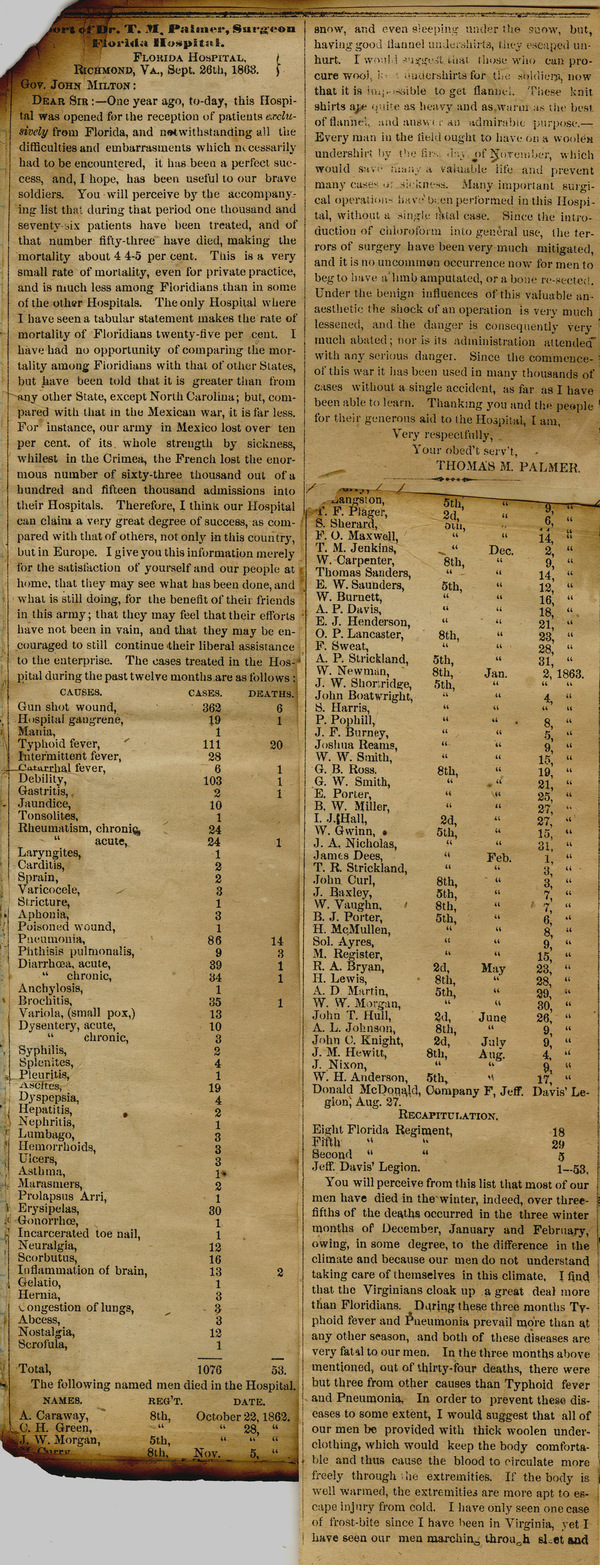 ort of Dr. T. M. Palmer, Surgeon
Florida Hospital.
FLORIDA HOSPITAL,
RICHMOND, VA., Sept. 26th, 1863.
GOV. JOHN MILTON:
DEAR SIR:—One year ago, to-day, this Hospi-
tal was opened for the reception of patients exclu-
sively from Florida, and notwithstanding all the
difficulties and embarrasments which necessarily
had to be encountered, it has been a perfect suc-
cess, and, I hope, has been useful to our brave
soldiers. You will perceive by the accompany-
ing list that during that period one thousand and
seventy-six patients have been treated, and of
that number fifty-three have died, making the
mortality about 4 4-5 per cent. This is a very
small rate of mortality, even for private practice,
and is much less among Floridians than in some
of the other Hospitals. The only Hospital where
I have seen a tabular statement makes the rate of
mortality of Floridians twenty-five per cent. I
have had no opportunity of comparing the mor-
tality among Floridians with that of other States,
but have been told that it is greater than from
any other State, except North Carolina; but, com-
pared with that in the Mexican war, it is far less.
For instance, our army in Mexico lost over ten
per cent. of its whole strength by sickness,
whilest in the Crimea, the French lost the enor-
mous number of sixty-three thousand out of a
hundred and fifteen thousand admissions into
their Hospitals. Therefore, I think our Hospital
can claim a very great degree of success, as com-
pared with that of others, not only in this country,
but in Europe. I give you this information merely
for the satisfaction of yourself and our people at
home, that they may see what has been done, and
what is still doing, for the benefit of their friends
in this army; that they may feel that their efforts
have not been in vain, and that they may be en-
couraged to still continue their liberal assistance
to the enterprise. The cases treated in the Hos-
pital during the past twelve months are as follows:
CAUSES. CASES. DEATHS.
Gun shot wound, 362 6
Hospital gangrene, 19 1
Mania, 1
Typhoid fever, 111 20
Intermittent fever, 28
Catarrhal fever, 6 1
Debility, 103 1
Gastritis, 2 1
Jaundice, 10
Tonsolites, 1
Rheumatism, chronic, 24
" acute, 24 1
Laryngites, 1
Carditis, 2
Sprain, 2
Varicocele, 3
Stricture, 1
Aphonia, 3
Poisoned wound, 1
Pneumonia, 86 14
Phthisis pulmonalis, 9 3
Diarrhœa, acute, 39 1
" chronic, 34 1
Anchylosis, 1
Brochitis, 35 1
Variola, (small pox,) 13
Dysentery, acute, 10
" chronic, 3
Syphilis, 2
Splenites, 4
Pleuritis, 1
Ascites, 19
Dyspepsia, 4
Hepatitis, 2
Nephritis, 1
Lumbago, 3
Hemorrhoids, 3
Ulcers, 3
Asthma, 1
Marasmers, 2
Prolapsus Arri, 1
Erysipelas, 30
Gonorrhœ, 1
Incarcerated toe nail, 1
Neuralgia, 12
Scorbutus, 16
Inflammation of brain, 13 2
Gelatio, 1
Hernia, 3
Congestion of lungs, 3
Abcess, 3
Nostalgia, 12
Scrofula, 1
Total, 1076 53.
The following named men died in the Hospital.
NAMES. REG'T. DATE.
A. Caraway, 8th, October 22, 1862.
C. H. Green, " " 28, "
J. W. Morgan, 5th, " " "
8th, Nov. 5, "
snow, and even sleeping under the snow, but,
having good flannel undershirts, they escaped un-
hurt. I would suggest that those who can pro-
cure wool, undershirts for the soldiers, now
that it is impossible to get flannel. These knit
shirts are quite as heavy and as warm as the best
of flannel, and answer an admirable purpose.—
Every man in the field ought to have on a woolen
undershirt by the first day of November, which
would save many a valuable life and prevent
many cases of sickness. Many important surgi-
cal operations have been performed in this Hospi-
tal, without a single fatal case. Since the intro-
duction of chloroform into general use, the ter-
rors of surgery have been very much mitigated,
and it is no uncommon occurrence now for men to
beg to have a limb amputated, or a bone re-sected.
Under the benign influences of this valuable an-
aesthetic the shock of an operation is very much
lessened, and the danger is consequently very
much abated; nor is its administration attended
with any serious danger. Since the commence-
of this war it has been used in many thousands of
cases without a single accident, as far as I have
been able to learn. Thanking you and the people
for their generous aid to the Hospital, I am,
Very respectfully,
Your obed't serv't,
THOMAS M. PALMER.
Langston, 5th, " 9, "
T. F. Plager, 2d, " 6, "
S. Sherard, 5th, "
F. O. Maxwell, " " 14, "
T. M. Jenkins, " Dec. 2, "
W. Carpenter, 8th, " 9, "
Thomas Sanders, " " 14, "
E. W. Saunders, 5th, " 12, "
W. Burnett, " " 16, "
A. P. Davis, " " 18, "
E. J. Henderson, " " 21, "
O. P. Lancaster, 8th, " 23, "
F. Sweat, " " 28, "
A. P. Strickland, 5th, " 31, "
W. Newman, 8th, Jan. 2, 1863.
J. W. Shortridge, 5th, " " "
John Boatwright, " " 4, "
S. Harris, " " " "
P. Pophill, " " 8, "
J. F. Burney, " " 5, "
Joshua Reams, " " 9, "
W. W. Smith, " " 15, "
G. B. Ross. 8th, " 19, "
G. W. Smith, " " 21, "
E. Porter, " " 25, "
B. W. Miller, " " 27, "
I. J. Hall, 2d, " 27, "
W. Gwinn, 5th, " 15, "
J. A. Nicholas, " " 31, "
James Dees, " Feb. 1, "
T. R. Strickland, " " 3, "
John Curl, 8th, " 3, "
J. Baxley, 5th, " 7, "
W. Vaughn, 8th, " 7, "
B. J. Porter, 5th, " 6, "
H. McMullen, " " 8, "
Sol. Ayres, " " 9, "
M. Register, " " 15, "
R. A. Bryan, 2d, May 23, "
H. Lewis, 8th, " 28, "
A. D Martin, 5th, " 29, "
W. W. Morgan, " " 30, "
John T. Hull, 2d, June 26, "
A. L. Johnson, 8th, " 9, "
John C. Knight, 2d, July 9, "
J. M. Hewitt, 8th, Aug. 4, "
J. Nixon, " " 9, "
W. H. Anderson, 5th, " 17, "
Donald McDonald, Company F, Jeff. Davis' Le-
gion, Aug. 27.
RECAPITULATION.
Eight Florida Regiment, 18
Fifth " " 29
Second " " 5
Jeff. Davis' Legion. 1—53.
You will perceive from this list that most of our
men have died in the winter, indeed, over three-
fifths of the deaths occurred in the three winter
months of December, January and February,
owing, in some degree, to the difference in the
climate and because our men do not understand
taking care of themselves in this climate. I find
that the Virginians cloak up a great deal more
than Floridians. During these three months Ty-
phoid fever and Pneumonia prevail more than at
any other season, and both of these diseases are
very fatal to our men. In the three months above
mentioned, out of thirty-four deaths, there were
but three from other causes than Typhoid fever
and Pneumonia. In order to prevent these dis-
eases to some extent, I would suggest that all of
our men be provided with thick woolen under-
clothing, which would keep the body comforta-
ble and thus cause the blood to circulate more
freely through the extremities. If the body is
well warmed, the extremities are more apt to es-
cape injury from cold. I have only seen one case
of frost-bite since I have been in Virginia, yet I
have seen our men marching through sleet and